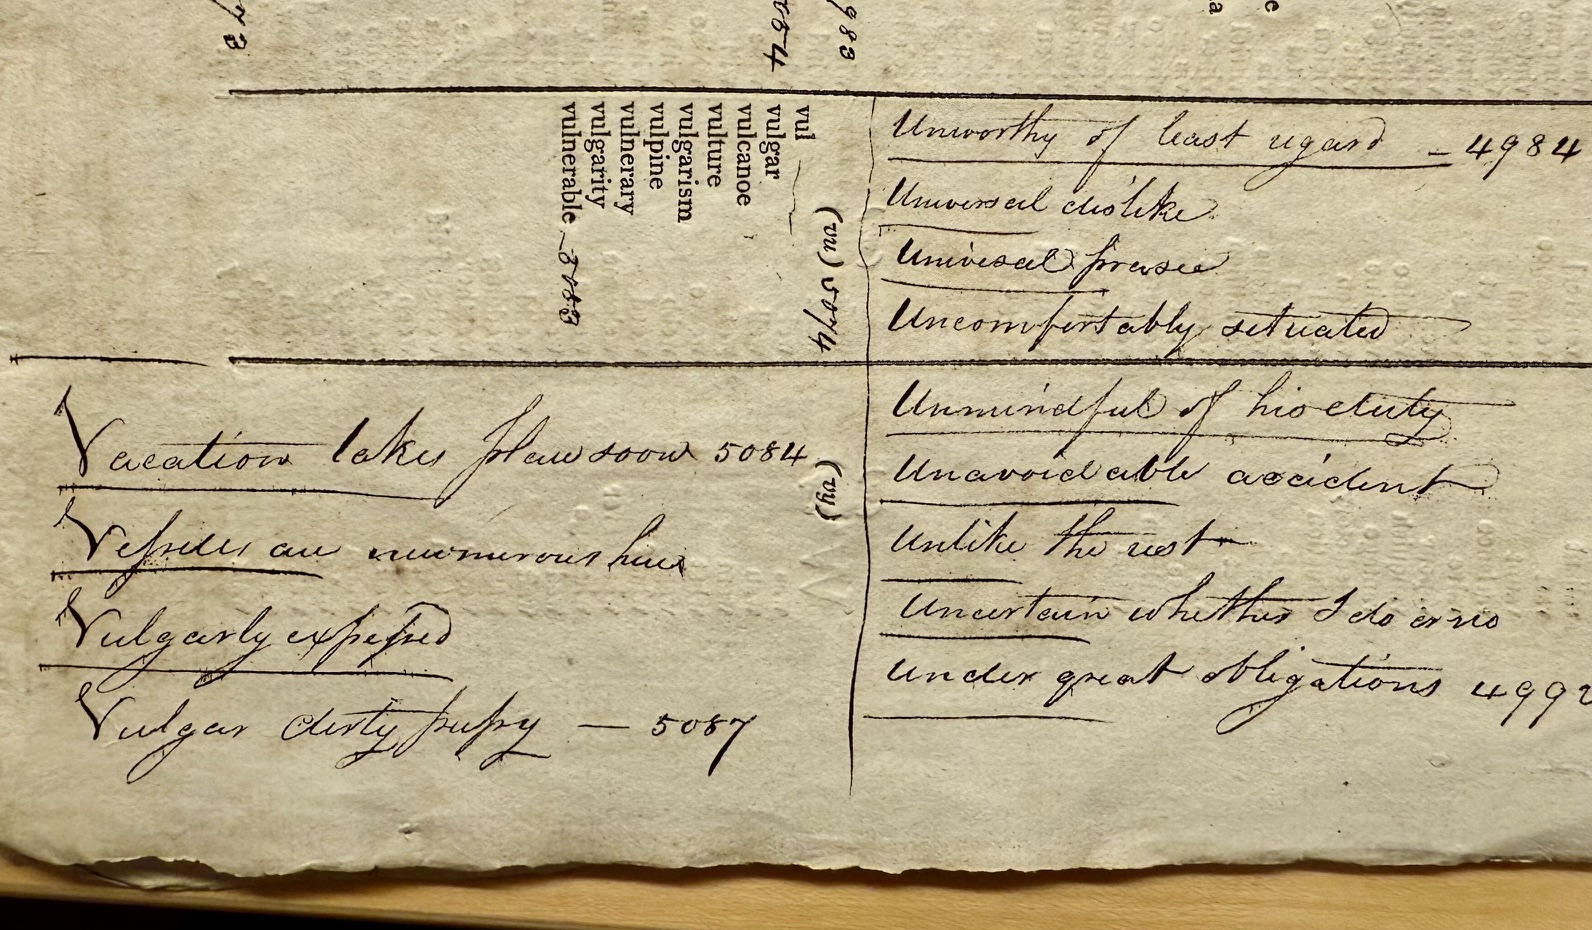 983
vul
vulgar
vulcanoe
vulture
vulgarism
vulpine
vulnerary
vulgarity
vulnerable
(vu)
(vy)
Vacation takes place soon 5084
Vespers are numerous here
Vulgarly expressed
Vulgar dirty pupy — 5087
Unworthy of least regard – 4984
Universal dislike
Universal praise
Uncomfortably situated
Unmindful of his duty
Unavoidable accident
Unlike the rest
Uncertain whether I do or no
Under great obligations 4992